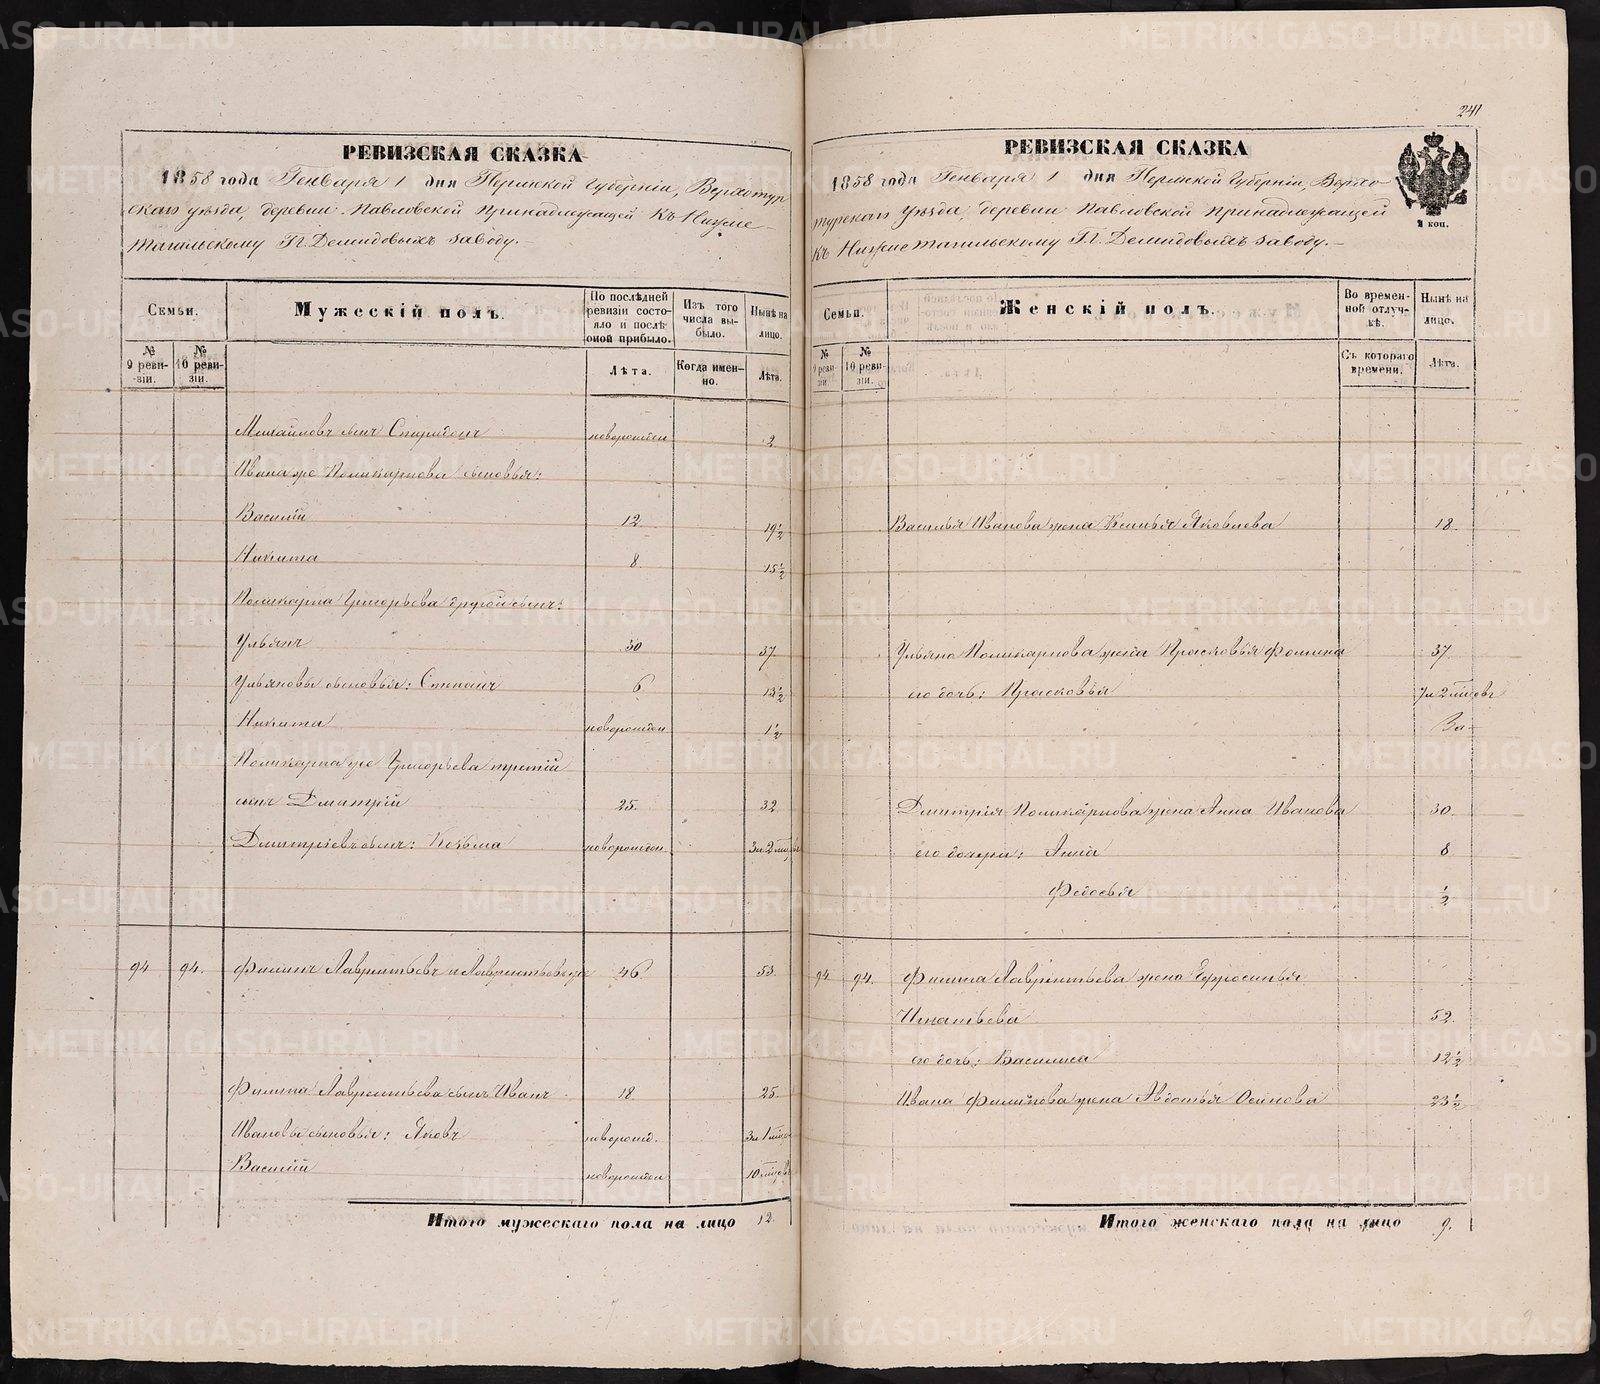 241
РЕВИЗСКАЯ СКАЗКА
1858 года Генваря 1 дня Пермской Губерніи, Верхотур
скаго уѣзда, деревни Павловской принадлежащей къ Нижне-
тагильскому Гг. Демидовыхъ заводу.
Семьи.
Мужескій полъ.
По послѣдней ревизіи состояло и послѣ оной прибыло.
Изъ того числа выбыло.
Нынѣ на лицо.
№ 9 ревизіи.
№ 10 ревизіи.
Лѣта.
Когда именно.
Лѣта.
Михайловъ сынъ Спиридонъ новорожден 2
Ивана же Поликарпова сыновья:
Василій 12 19½
Никита 8 15½
Поликарпа Григорьева другой сынъ:
Ульянъ 30 37
Ульяновы сыновья: Степанъ 6 13½
Никита новорожден 1½
Поликарпа же Григорьева третій
сынъ Дмитрій 25 32
Дмитріевъ сынъ: Козьма новорожден 3 и 2 мѣс
94 94. Филипъ Лаврентьевъ 46 53.
Филипа Лаврентьева сынъ Иванъ 18 25.
Ивановы сыновья: Яковъ новорожд. 3 и 1 мѣс
Василій новорожден 10 мѣсяцовъ
Итого мужескаго пола на лицо 12.
РЕВИЗСКАЯ СКАЗКА
1858 года Генваря 1 дня Пермской Губерніи, Верхо-
турскаго уѣзда, деревни Павловской принадлежащей
къ Нижнетагильскому Гг. Демидовыхъ заводу.
2 коп.
Семьи.
Женскій полъ.
Во временной отлучкѣ.
Нынѣ на лицо.
№ 9 ревизіи.
№ 10 ревизіи.
Съ котораго времени.
Лѣта.
Василья Иванова жена Ксенья Яковлева 18
Ульяна Поликарпова жена Прасковья Фомина 37
его дочь: Прасковья 7 и 2 мѣсяцовъ
Дмитрія Поликарпова жена Анна Иванова 30
его дочери: Анна 8
Федосья ½
94 94. Филипа Лаврентьева жена Ефросинья
Игнатьева 52
его дочь: Василиса 12½
Ивана Филипова жена Авдотья Осипова 23½
Итого женскаго пола на лицо 9.
METRIKI.GASO-URAL.RU